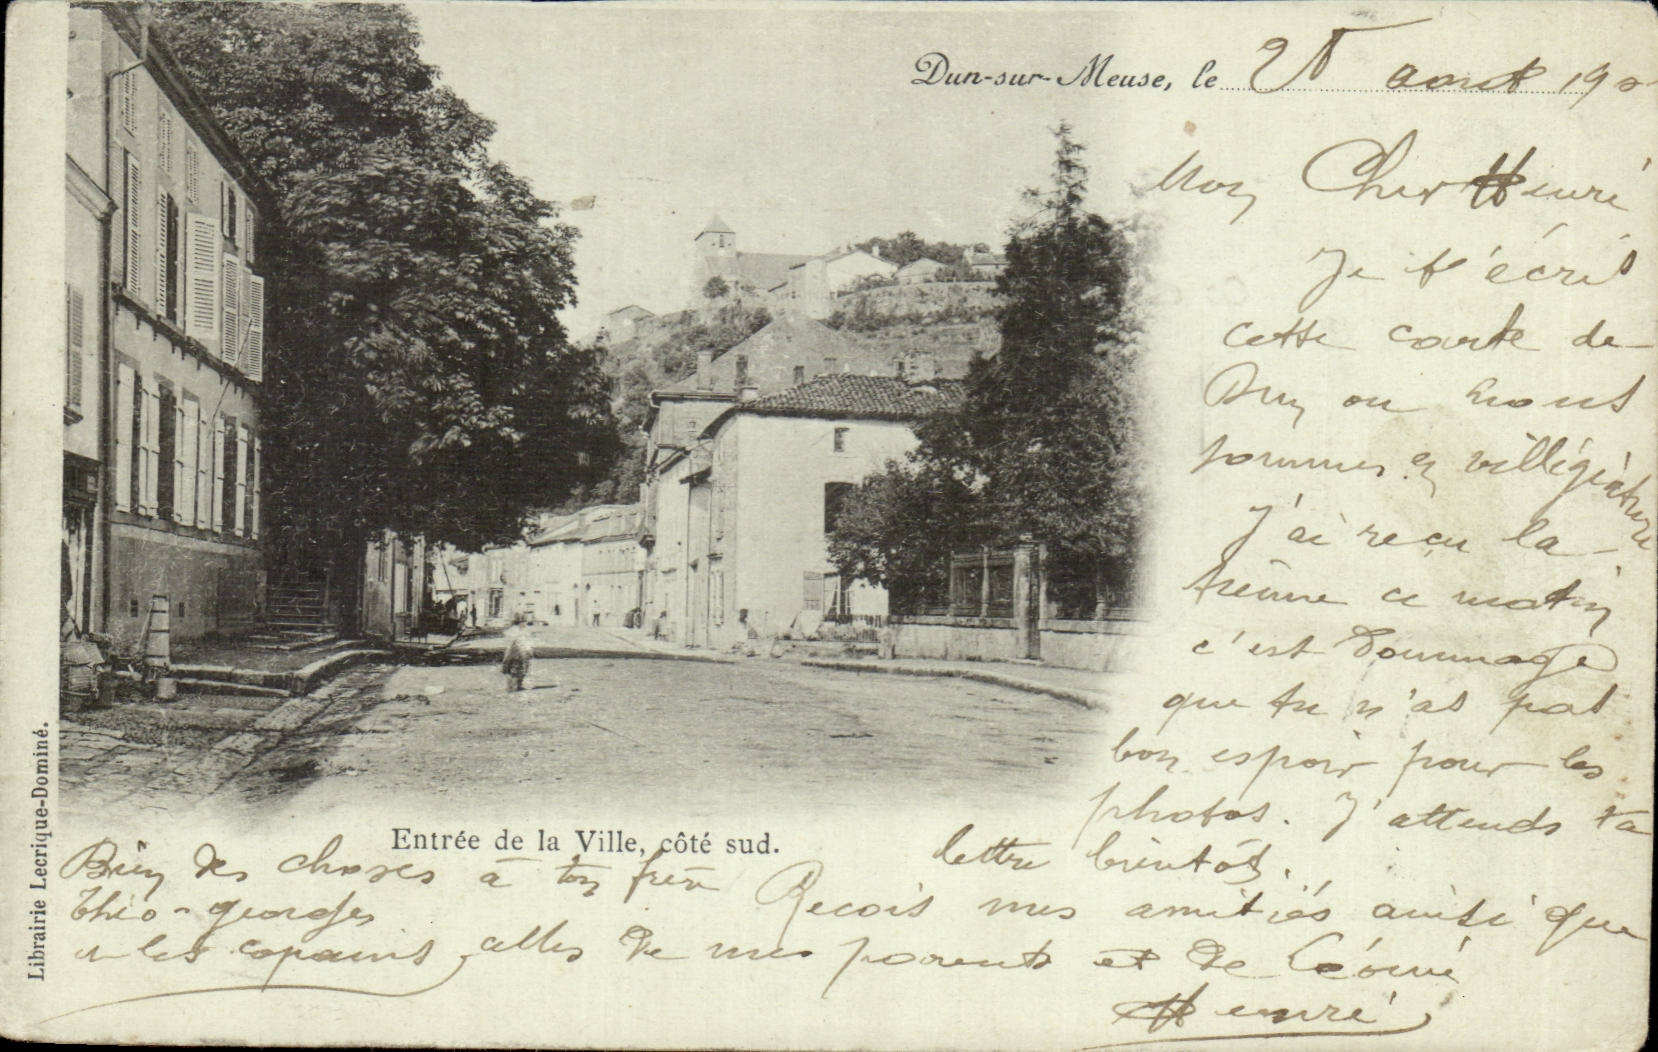 Dun-sur-Meuse, le août 190
Mon Cher Henri
Je t'écris
cette carte de
Dun ou nous
sommes en villégiature
J'ai reçu la
tienne ce matin
c'est dommage
que tu n'as pas
bon espoir pour les
photos. J'attends ta
lettre bientôt.
Reçois mes amitiés ainsi que
celles de mes parents et de
Henri
Entrée de la Ville, côté sud.
Bien des choses à ton frère
Théo-georges
et les copains
Librairie Lecrique-Dominé.